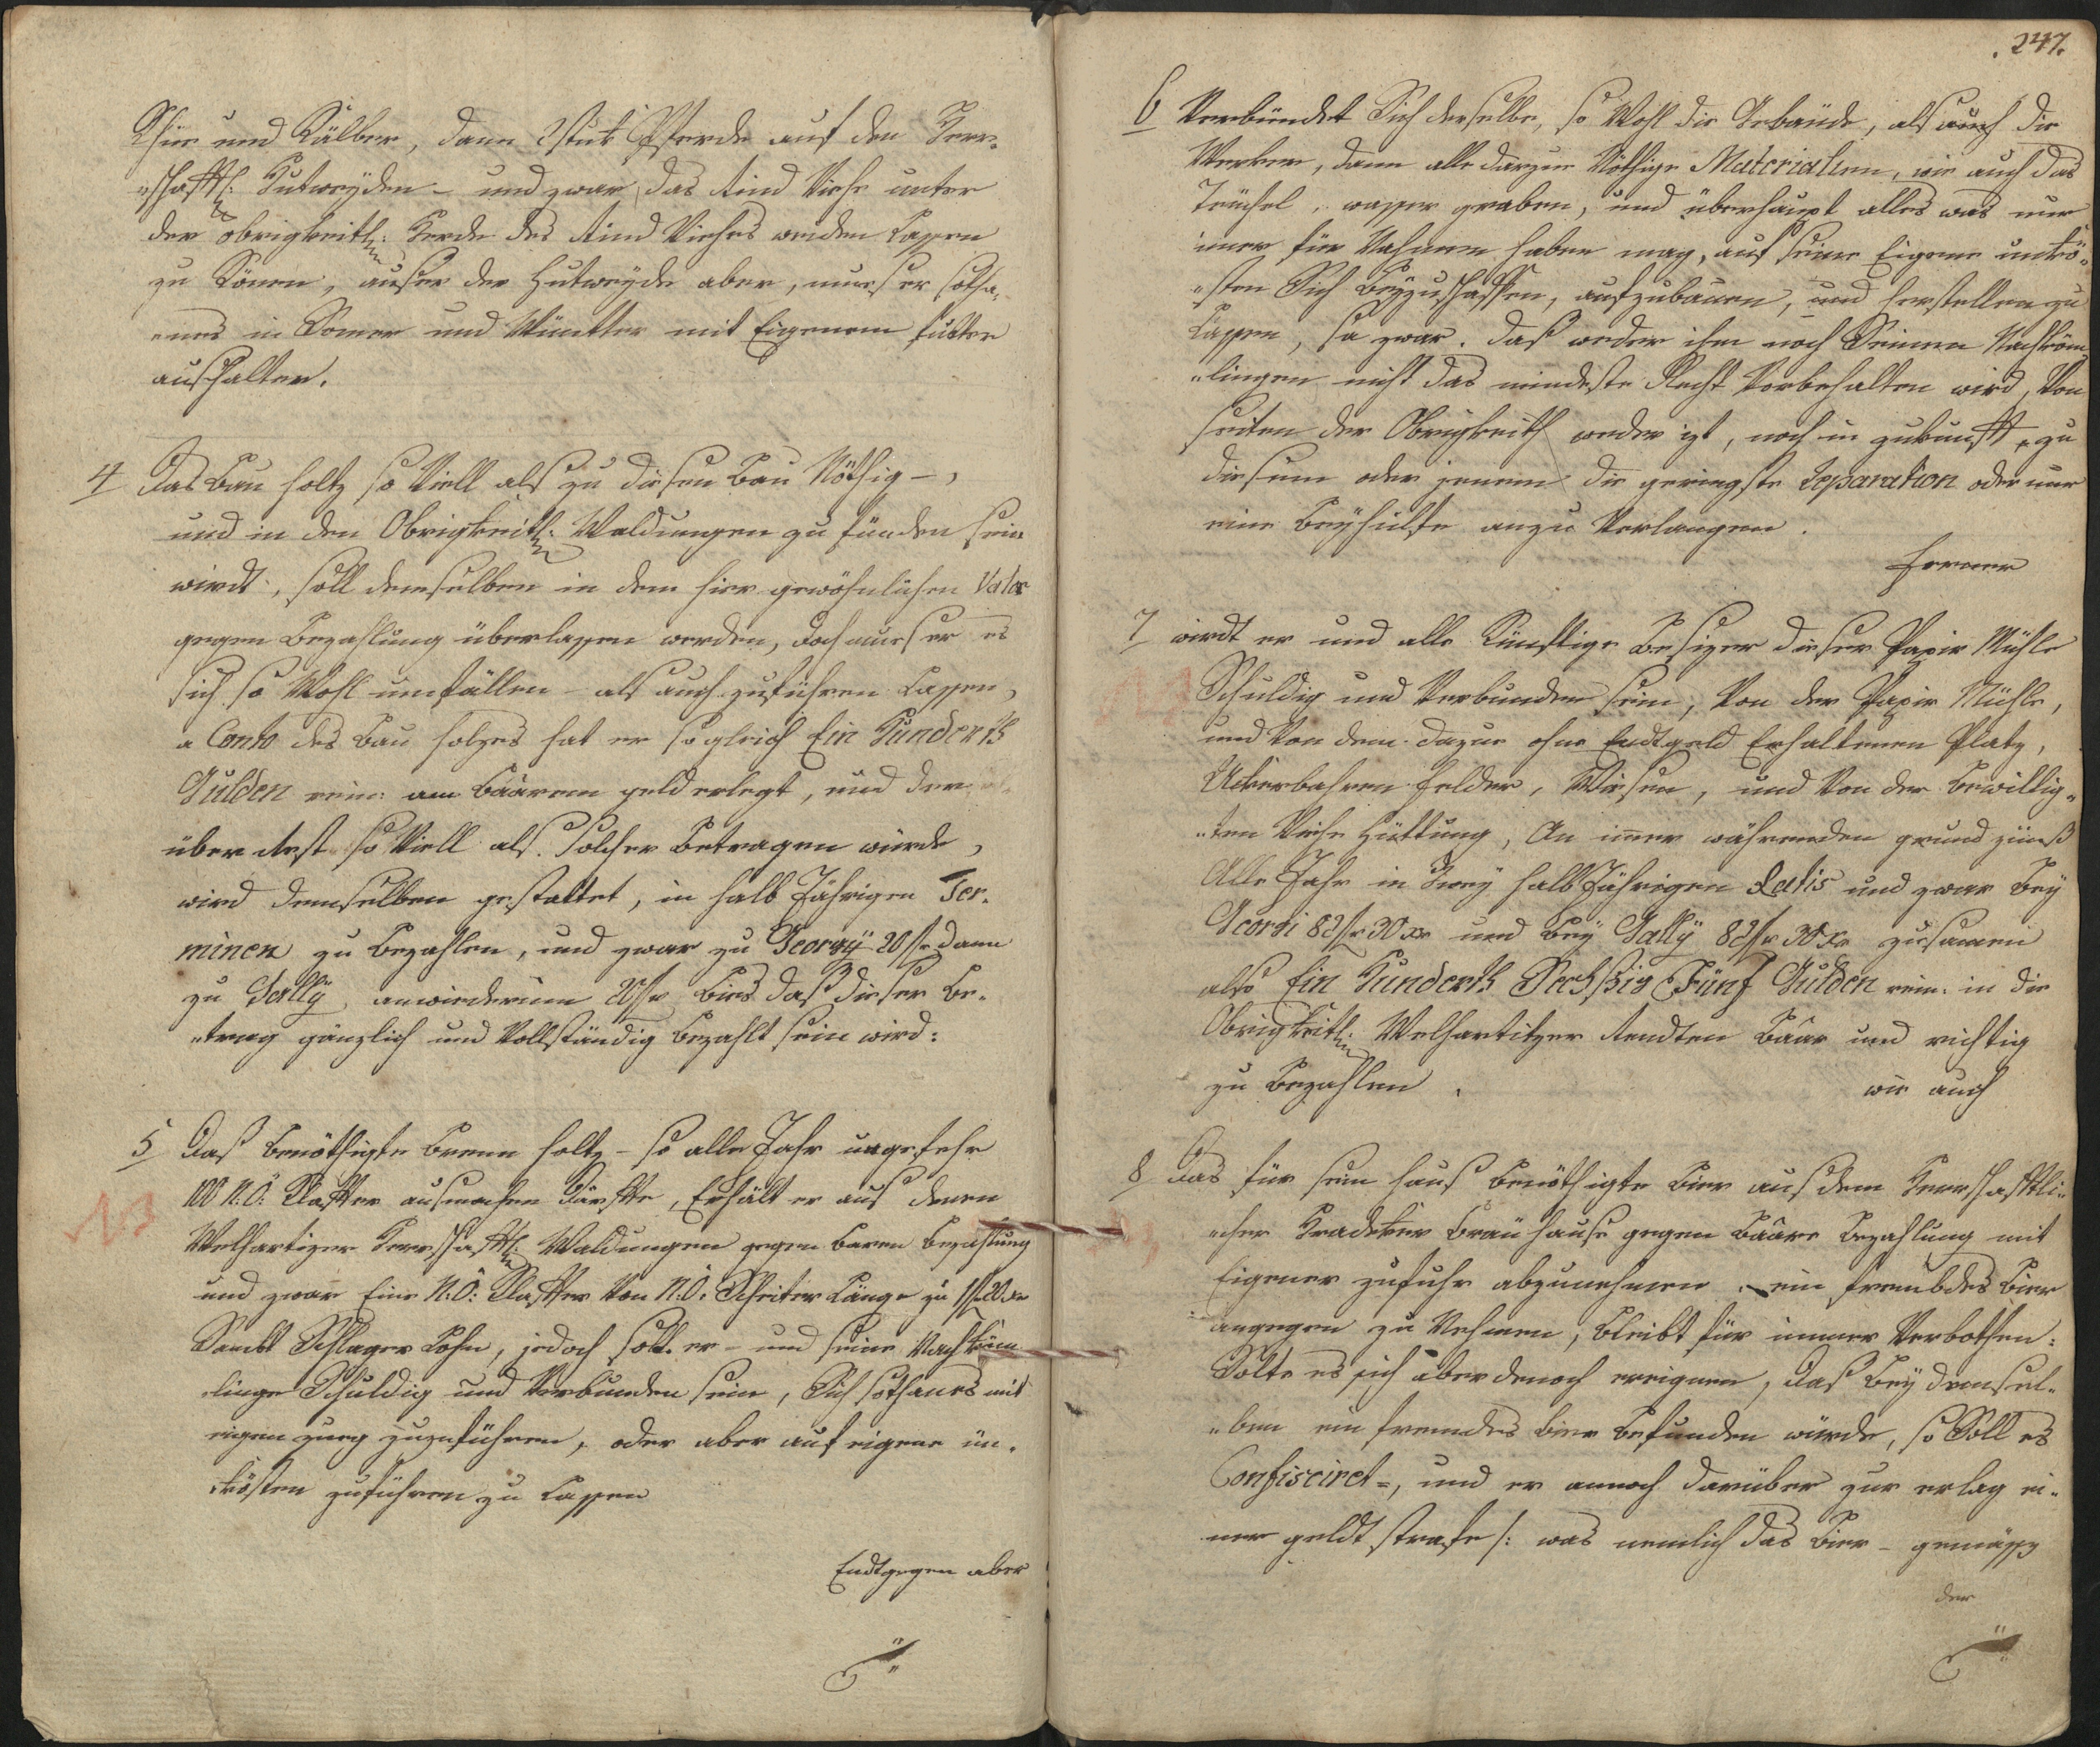 Khüe und Kälber, dann 2 stuk Pferde auf den Herr-
"schafftl: Hutweyden – und zwar das Rind Viehe unter
der obrigkeitl: Herde des Rind Viehes weiden Lassen
zu Könen, auser der Hutweyde aber, mus er sotha-
"nes in Somer und Wintter mit Eigenem futter
aushalten.
4 Das Bau holtz so Viell als zu diesen Bau Nöthig –,
und in den Obrigkeitl: Waldungen zu fünden sein
wirdt, soll demselben in dem hier gewöhnlichen Valor
gegen Bezahlung überlassen werden, doch mus er es
sich so Wohl umfällen – als auch zuführen Lassen,
a Conto des Bau holzes hat er sogleich Ein Hunderth
Gulden rein: am Baarem geld erlegt, und der
über Rest so Viell als solcher Betragen würde,
wird demselben gestattet, in halb Jährigen Ter-
minen zu Bezahlen, und zwar zu Georgÿ 20 fr dann
zu Gallÿ anwiederum 20 fr Bies daß dieser Be-
"trag gänzlich und Vollständig Bezahlt sein wird:
5 Daß Benöthigte Brenn holtz – so alle Jahr ungefehr
100 N:Ö: Klaffter ausmachen dürffte, Erhält er aus denen
Welhartizer Herrschafftl: Waldungen gegen baren Bezahlung
und zwar Eine N:Ö: Klaffter Von N:Ö: Scheiter Länge zu 1 fr 20 xr
Sambt Schlager Lohn, jedoch soll er – und seine Nachköm-
"linge Schuldig und Verbunden sein, Sich sothanes mit
eigen zueg zuzuführen, oder aber auf eigene un-
"kösten zuführen zu Lassen
Endtgegen aber
247.
6 Verbündet Sich derselbe, so Wohl die Gebäude, als auch die
Werker, dann alle darzue Nöthige Materialien, wie auch das
Teüchel, wasser graben, und überhaupt alles was nur
imer für Nahmen haben mag, auf seine Eigene unkö-
"sten Sich Beyzuschaffen, aufzubauen, und herstellen zu
Lassen, ja zwar. daß weder ihm noch Seinen Nachköm-
"lingen nicht das mindeste Recht Vorbehalten wird, Von
seiten der Obrigkeith weder izt, noch in zukunfft, zu
diesem oder jenem die geringste Reparation oder nur
eine Beyhülfe anzu Verlangen.
ferner
7 wirdt er und alle Künftige Besizer dieser Papir Mühle
Schuldig und Verbunden sein, Von der Papir Mühle,
und Von dem dazue ohne Endtgeld Erhaltenen Platz,
Ackerbahren felder, Wiesen, und Von der Bewillig-
"ten Viehe Hüttung, An imer währenden grund zinß
Alle Jahr in Zwey halb Jährigen Ratis und zwar Bey
Georgi 82 fr 30 xr und Bey Gallÿ 82 fr 30 xr zusamen
also Ein Hunderth Sechßig Fünf Gulden rein: in die
Obrigkeitl: Welhartitzer Rendten Baar und richtig
zu Bezahlen. wie auch
8 Das für sein Haus Benöthigte Bier aus dem Herrschafftli-
"cher Hradeker Bräu hause gegen Baare Bezahlung mit
Eigener zufuhr abzunehmen, ein frembdes Bier
angegen zu Nehmen, Bleibt für immer Verbothen:
Solte es sich aber denoch ereignen, daß Bey demsel-
"ben ein fremdes Bier Befunden würde, so Soll es
Confisciret =, und er annoch darüber zur erlag ei-
ner geldt strafe /: was nemlich das Bier – gemäss
der